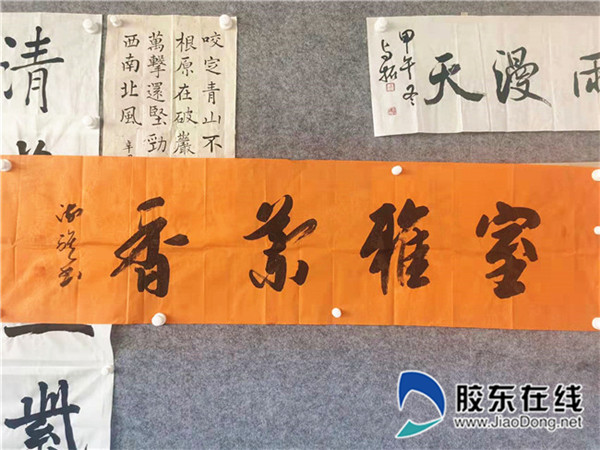 清
咬定青山不
根原在破巖
萬擊還堅勁
西南北風
雨漫天
甲午冬
室雅蘭香
胶东在线
www.JiaoDong.net